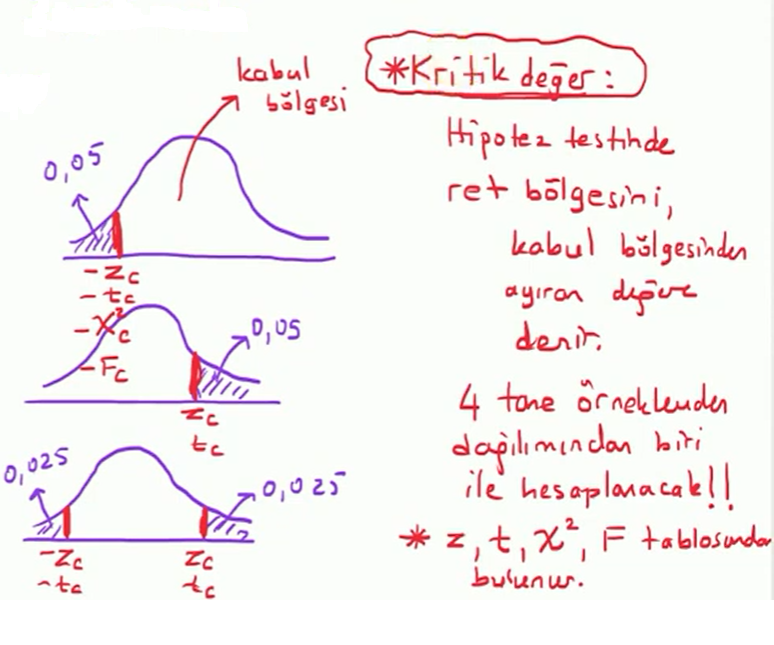 kabul
bölgesi
0,05
-Zc
-tc
-X²c
-Fc
0,05
Zc
tc
0,025
0,025
-Zc
-tc
Zc
tc
*Kritik değer:
Hipotez testinde
ret bölgesini,
kabul bölgesinden
ayıran değere
denir.
4 tane örneklenden
dağılımından biri
ile hesaplanacak!!
* z, t, X², F tablosundan
bulunur.